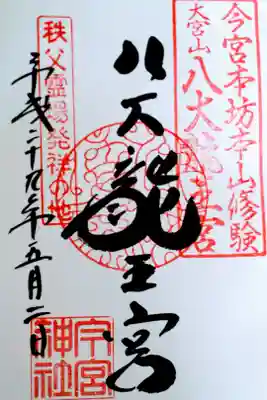 今宮本坊本山修験
大宮山 八大龍王宮
八大龍王宮
秩父霊場発祥の地
平成二十九年五月二日
今宮神社